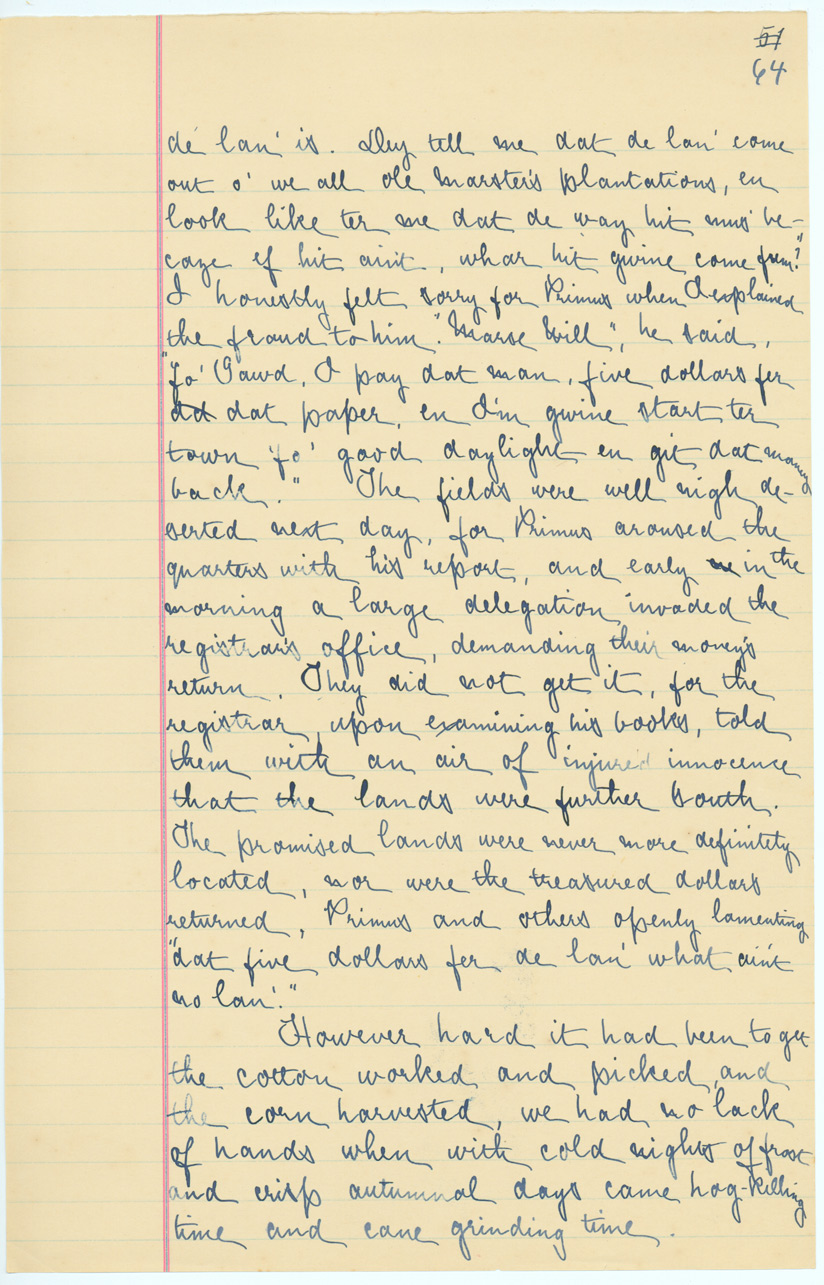 51
64
de lan' is. Dey tell me dat de lan' come
out o' we all ole Marster's plantations, en
look like ter me dat de way hit mus' be-
caze ef hit ain't, whar hit gwine come frum?"
I honestly felt sorry for Primus when I explained
the fraud to him. "Marse Will", he said,
"fo' Gawd, I pay dat man, five dollars fer
dd dat paper, en I'm gwine start ter
town 'fo' good daylight en git dat money
back." The fields were well nigh de-
serted next day, for Primus aroused the
quarters with his report, and early in the
morning a large delegation invaded the
registrar's office, demanding their money's
return. They did not get it, for the
registrar, upon examining his books, told
them with an air of injured innocence
that the lands were further South.
The promised lands were never more definitely
located, nor were the treasured dollars
returned, Primus and others openly lamenting
"dat five dollars fer de lan' what ain't
no lan'."
However hard it had been to get
the cotton worked and picked, and
the corn harvested, we had no lack
of hands when with cold nights of frost
and crisp autumnal days came hog-killing
time and cane grinding time.